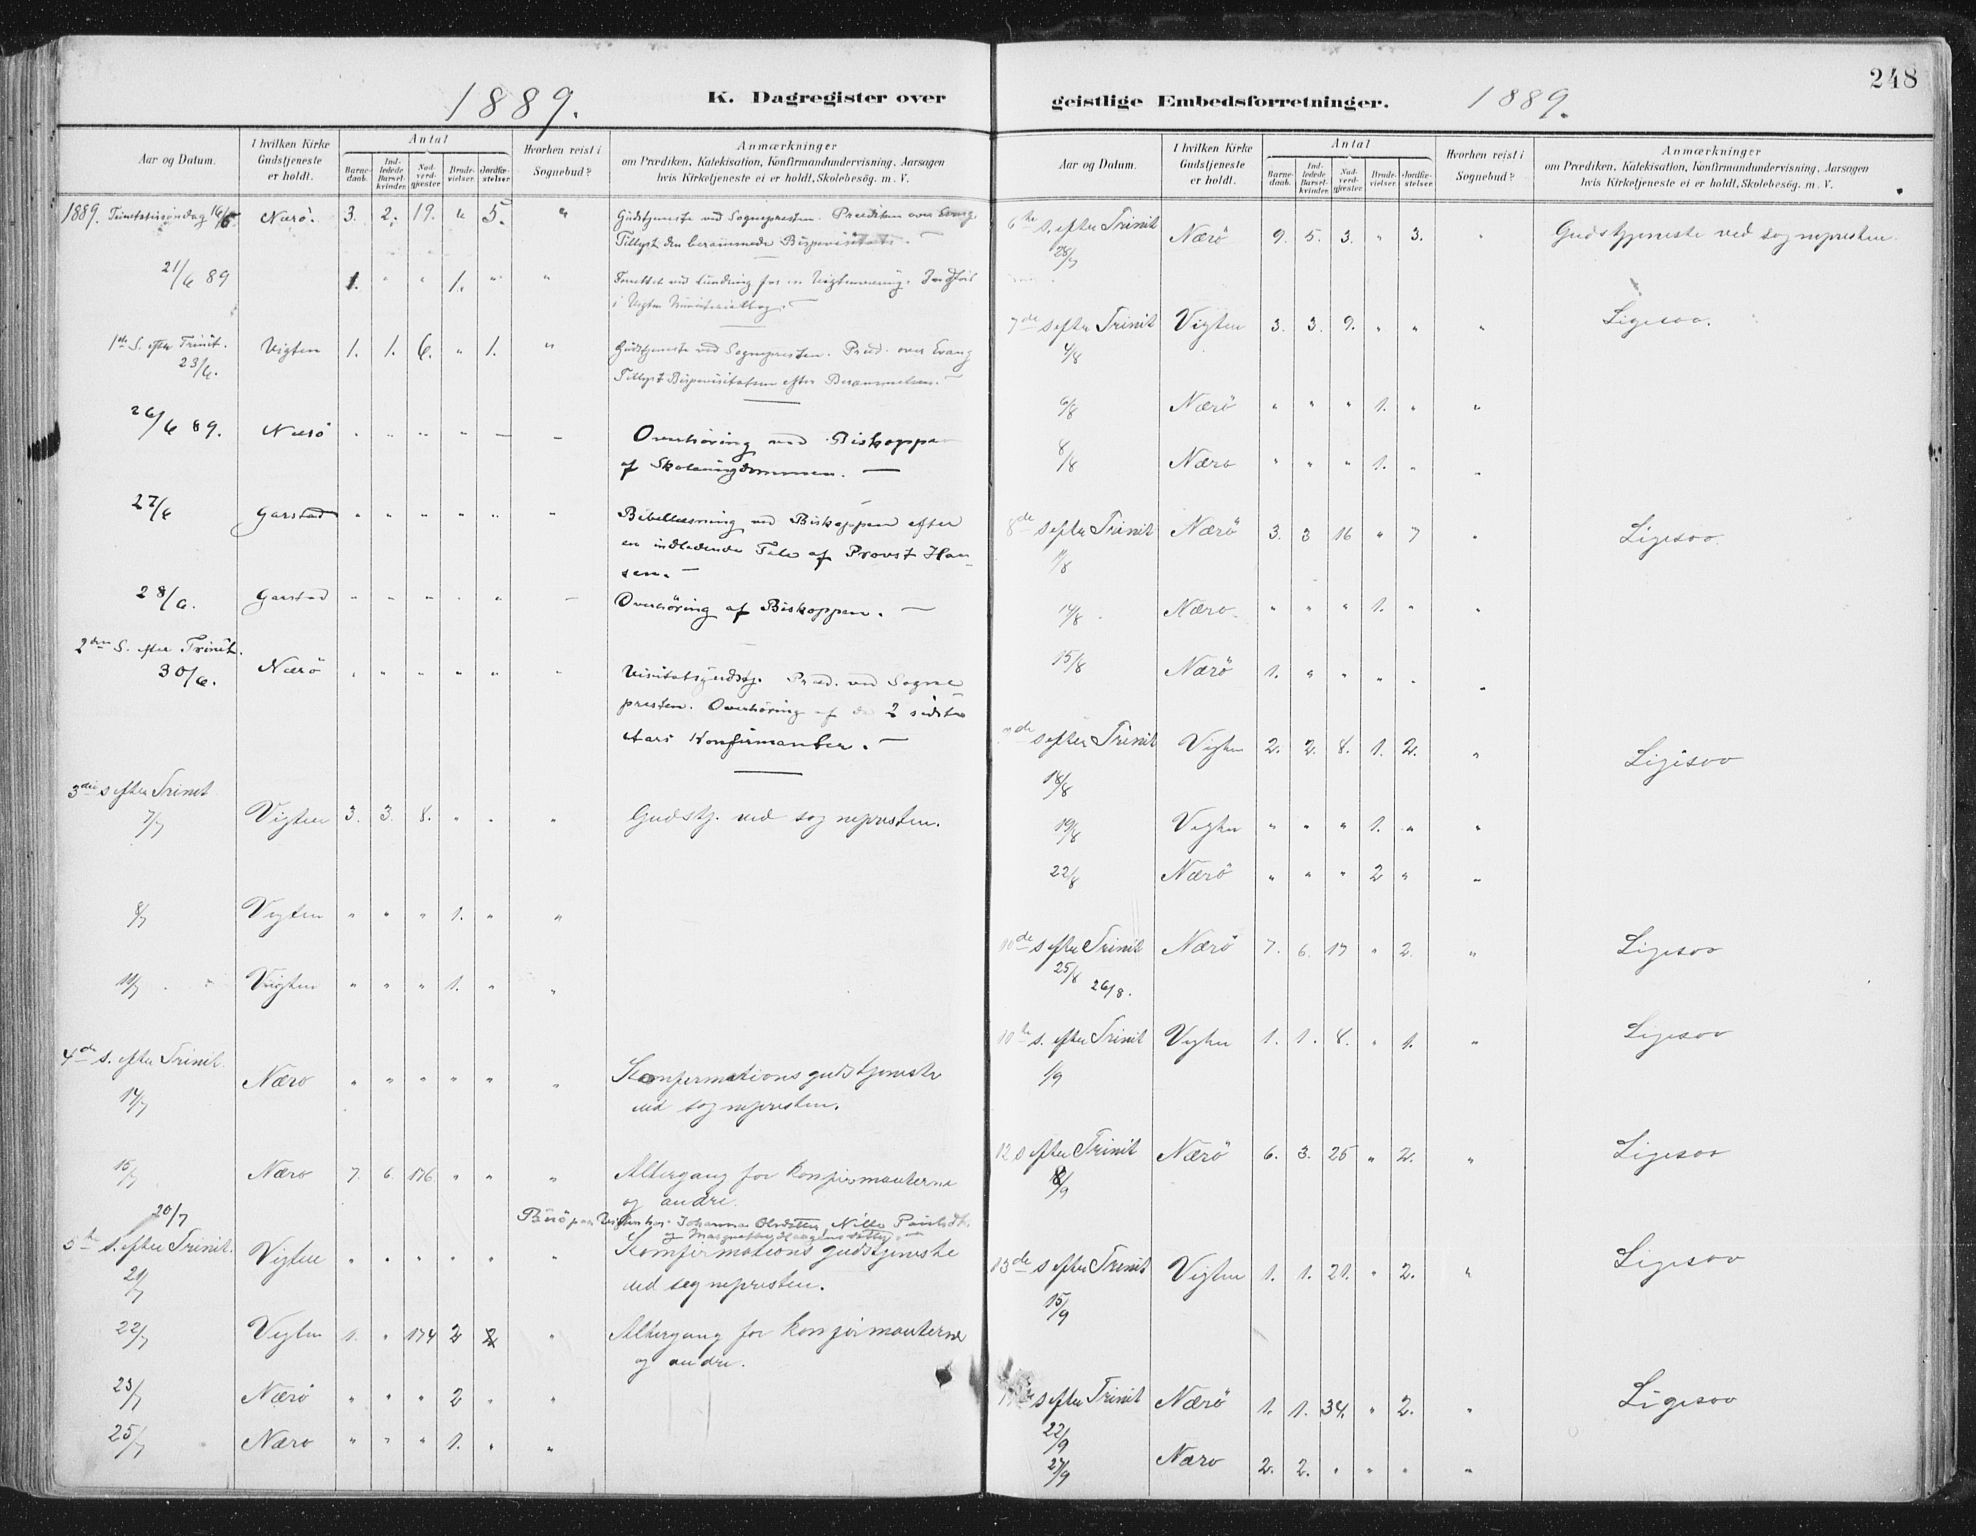 1889.
K. Dagregister over
Aar og Datum.
I hvilken Kirke Gudstjeneste er holdt.
Antal
Barne-daab.
Ind-ledede Barsel-kvinder.
Nad-verd-gjester
Brude-vielser.
Jordfæ-stelser
Hvorhen reist i Sognebud?
Anmærkninger
om Prædiken, Katekisation, Konfirmandundervisning, Aarsagen
hvis Kirketjeneste ei er holdt, Skolebesög. m. V.
1889. Trinitatissöndag 16/6 Nærö. 3. 2. 19. " 5. " Gudstjeneste ved Sognepresten. Prædiken over Evang.
Tillyst den berammede Bispevisitats. —
21/6 89 1. " " 1. " "
i Vigten Ministerialbog. —
1ste S. efter Trinit. 23/6. Vigten 1. 1. 6. " 1. " Gudstjeneste ved Sognepresten. Præd. over Evang
Tillyst Bispevisitatsen efter Berammelsen. —
26/6 89. Nærö Overhöring ved Biskoppen
af Skoleungdommen. —
27/6 Garstad " " " " " " Bibellæsning ved Biskoppen efter
en indledende Tale af Provst Han-
sen. —
28/6. Garstad Overhöring af Biskoppen. —
2den S. efter Trinit. 30/6. Nærö Visitatsgudstj. Præd. ved Sogne
presten. Overhöring af de 2 sidste
Aars Konfirmanter. —
3die S efter Trinit 7/7 Vigten 3. 3. 8. " " " Gudstj. ved sognepresten.
8/7 Vigten " " " 1. " "
Vigten " " " 1. " "
4de S. efter Trinit. 14/7 Nærö " " " " " " Konfirmationsgudstjeneste
ved sognepresten.
15/7 Nærö 7. 6. 176. " " " Altergang for konfirmanterne
og andre.
20/7
5te S. efter Trinit. 21/7 Vigten " " " " " " Konfirmationsgudstjeneste
ved sognepresten.
22/7 Vigten 1. " 174 2 2 " Altergang for konfirmanterne
og andre.
23/7 Nærö " " " 2 " "
25/7 Nærö " " " 1. " "
248
geistlige Embedsforretninger.
1889.
Aar og Datum.
I hvilken Kirke Gudstjeneste er holdt.
Antal
Barne-daab.
Ind-ledede Barsel-kvinder.
Nad-verd-gjester
Brude-vielser.
Jordfæ-stelser
Hvorhen reist i Sognebud?
Anmærkninger
om Prædiken, Katekisation, Konfirmandundervisning, Aarsagen
hvis Kirketjeneste ei er holdt, Skolebesög. m. V.
6te S. efter Trinit 28/7 Nærö 9. 5. 3. " 3. " Gudstjeneste ved sognepresten.
7de S efter Trinit 4/8 Vigten 3. 3. 9. " " " Ligesoo.
6/8 Nærö " " " 1. " "
8/8 Nærö " " " 1. " "
8de S efter Trinit 11/8 Nærö 3. 3 16 " 7 " Ligesoo.
14/8 Nærö " " " 1. " "
15/8 Nærö 1. " " " " "
S efter Trinit 18/8 Vigten 2. 2. 8. 1. 2. " Ligesoo
19/8 Vigten " " " 1. " "
22/8 Nærö " " " 2 " "
10de S efter Trinit 25/8 26/8. Nærö 7. 6. 17 " 2. " Ligesoo
S. efter Trinit 1/9 Vigten 1. 1. 8. " 1. " Ligesoo
12 S efter Trinit 8/9 Nærö 6. 3. 25 " 2. " Ligesoo
13de S efter Trinit 15/9 Vigten 1. 1. 21. " 2. " Ligesoo
S efter Trinit 22/9 Nærö 1. 1. 34. " 2. " Ligesoo
27/9 Nærö 2. 2. " " " "